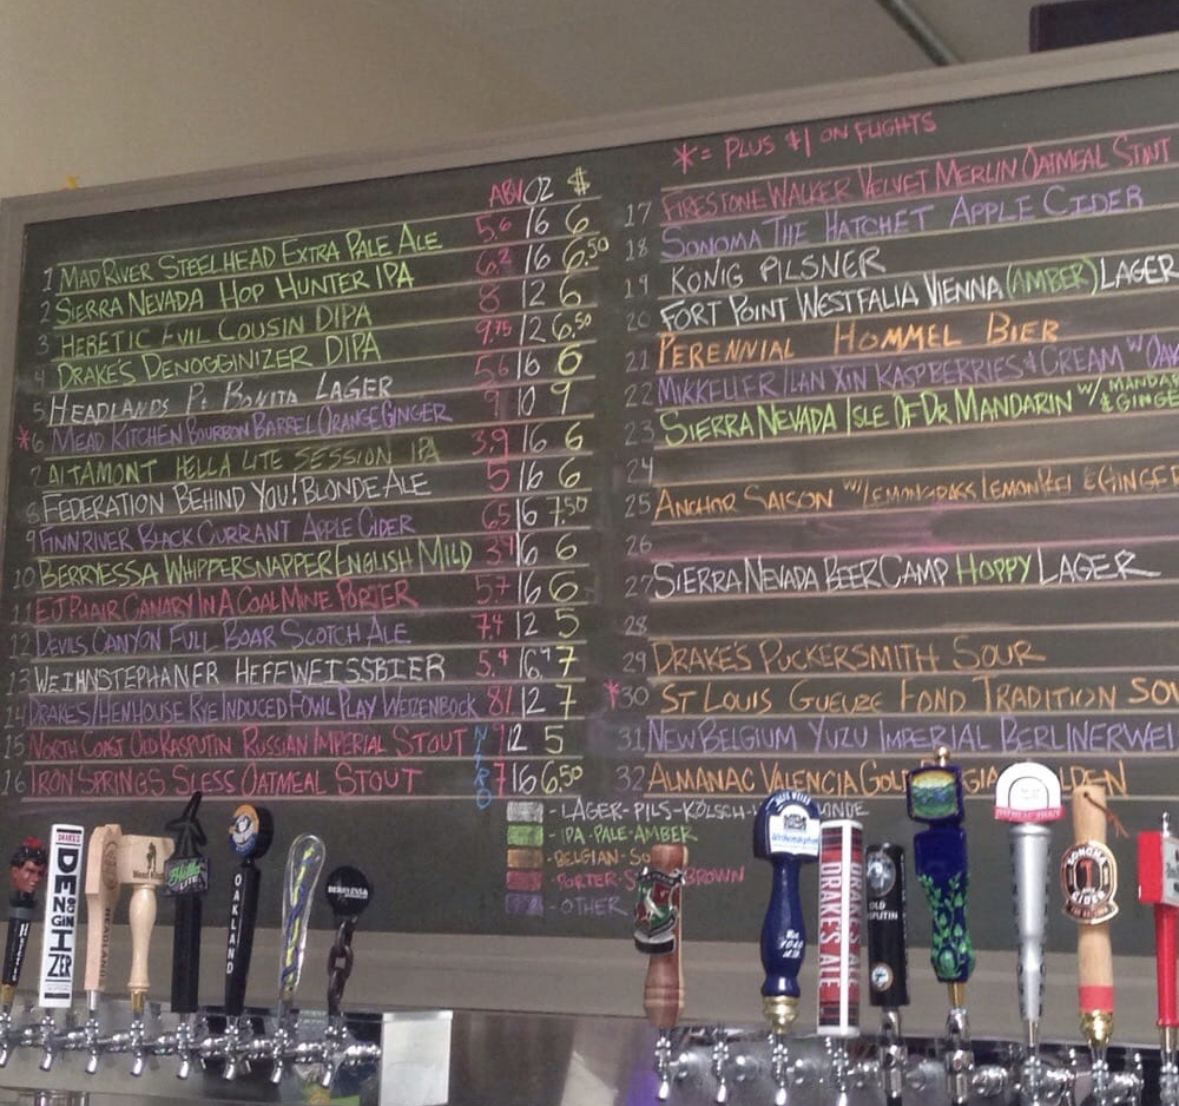 ABV OZ $
1 MAD RIVER STEELHEAD EXTRA PALE ALE 5.6 16 6
2 SIERRA NEVADA HOP HUNTER IPA 6.2 16 6.50
3 HERETIC EVIL COUSIN DIPA 8 12 6
4 DRAKE'S DENOGGINIZER DIPA 9.75 12 6.50
5 HEADLANDS Pt BONITA LAGER 5.6 16 6
*6 MEAD KITCHEN BOURBON BARREL ORANGE GINGER 9 10 9
7 ALTAMONT HELLA LITE SESSION IPA 3.9 16 6
8 FEDERATION BEHIND YOU! BLONDE ALE 5 16 6
9 FINNRIVER BLACK CURRANT APPLE CIDER 6.5 16 7.50
10 BERRYESSA WHIPPERSNAPPER ENGLISH MILD 3.9 16 6
11 EJ PHAIR CANARY IN A COAL MINE PORTER 5.7 16 6
12 DEVILS CANYON FULL BOAR SCOTCH ALE 7.4 12 5
13 WEIHNSTEPHANER HEFFWEISSBIER 5.4 16.9 7
14 DRAKES/HENHOUSE RYE INDUCED FOWL PLAY WEIZENBOCK 8.1 12 7
15 NORTH COAST OLD RASPUTIN RUSSIAN IMPERIAL STOUT 9 12 5
16 IRON SPRINGS SLESS OATMEAL STOUT 7 16 6.50
NITRO
*= PLUS $1 ON FLIGHTS
17 FIRESTONE WALKER VELVET MERLIN OATMEAL STOUT
18 SONOMA THE HATCHET APPLE CIDER
19 KONIG PILSNER
20 FORT POINT WESTFALIA VIENNA (AMBER) LAGER
21 PERENNIAL HOMMEL BIER
22 MIKKELLER/LAN XIN RASPBERRIES & CREAM W/ OA
23 SIERRA NEVADA ISLE OF DR MANDARIN W/ MANDAR & GINGE
24
25 ANCHOR SAISON W/ LEMONGRASS LEMON PEEL & GINGER
26
27 SIERRA NEVADA BEER CAMP HOPPY LAGER
28
29 DRAKE'S PUCKERSMITH SOUR
*30 ST LOUIS GUEUZE FOND TRADITION SOU
31 NEW BELGIUM YUZU IMPERIAL BERLINERWEI
32 ALMANAC VALENCIA GOL GIA LDEN
- LAGER-PILS-KÖLSCH- ONDE
- IPA-PALE-AMBER
- BELGIAN-SO
- PORTER-S BROWN
- OTHER
DRAKE'S
DENOGGINIZER
HEADLANDS
OAKLAND
BERRYESSA
DRAKES ALE
OLD
PUTIN
SONOMA
CIDER